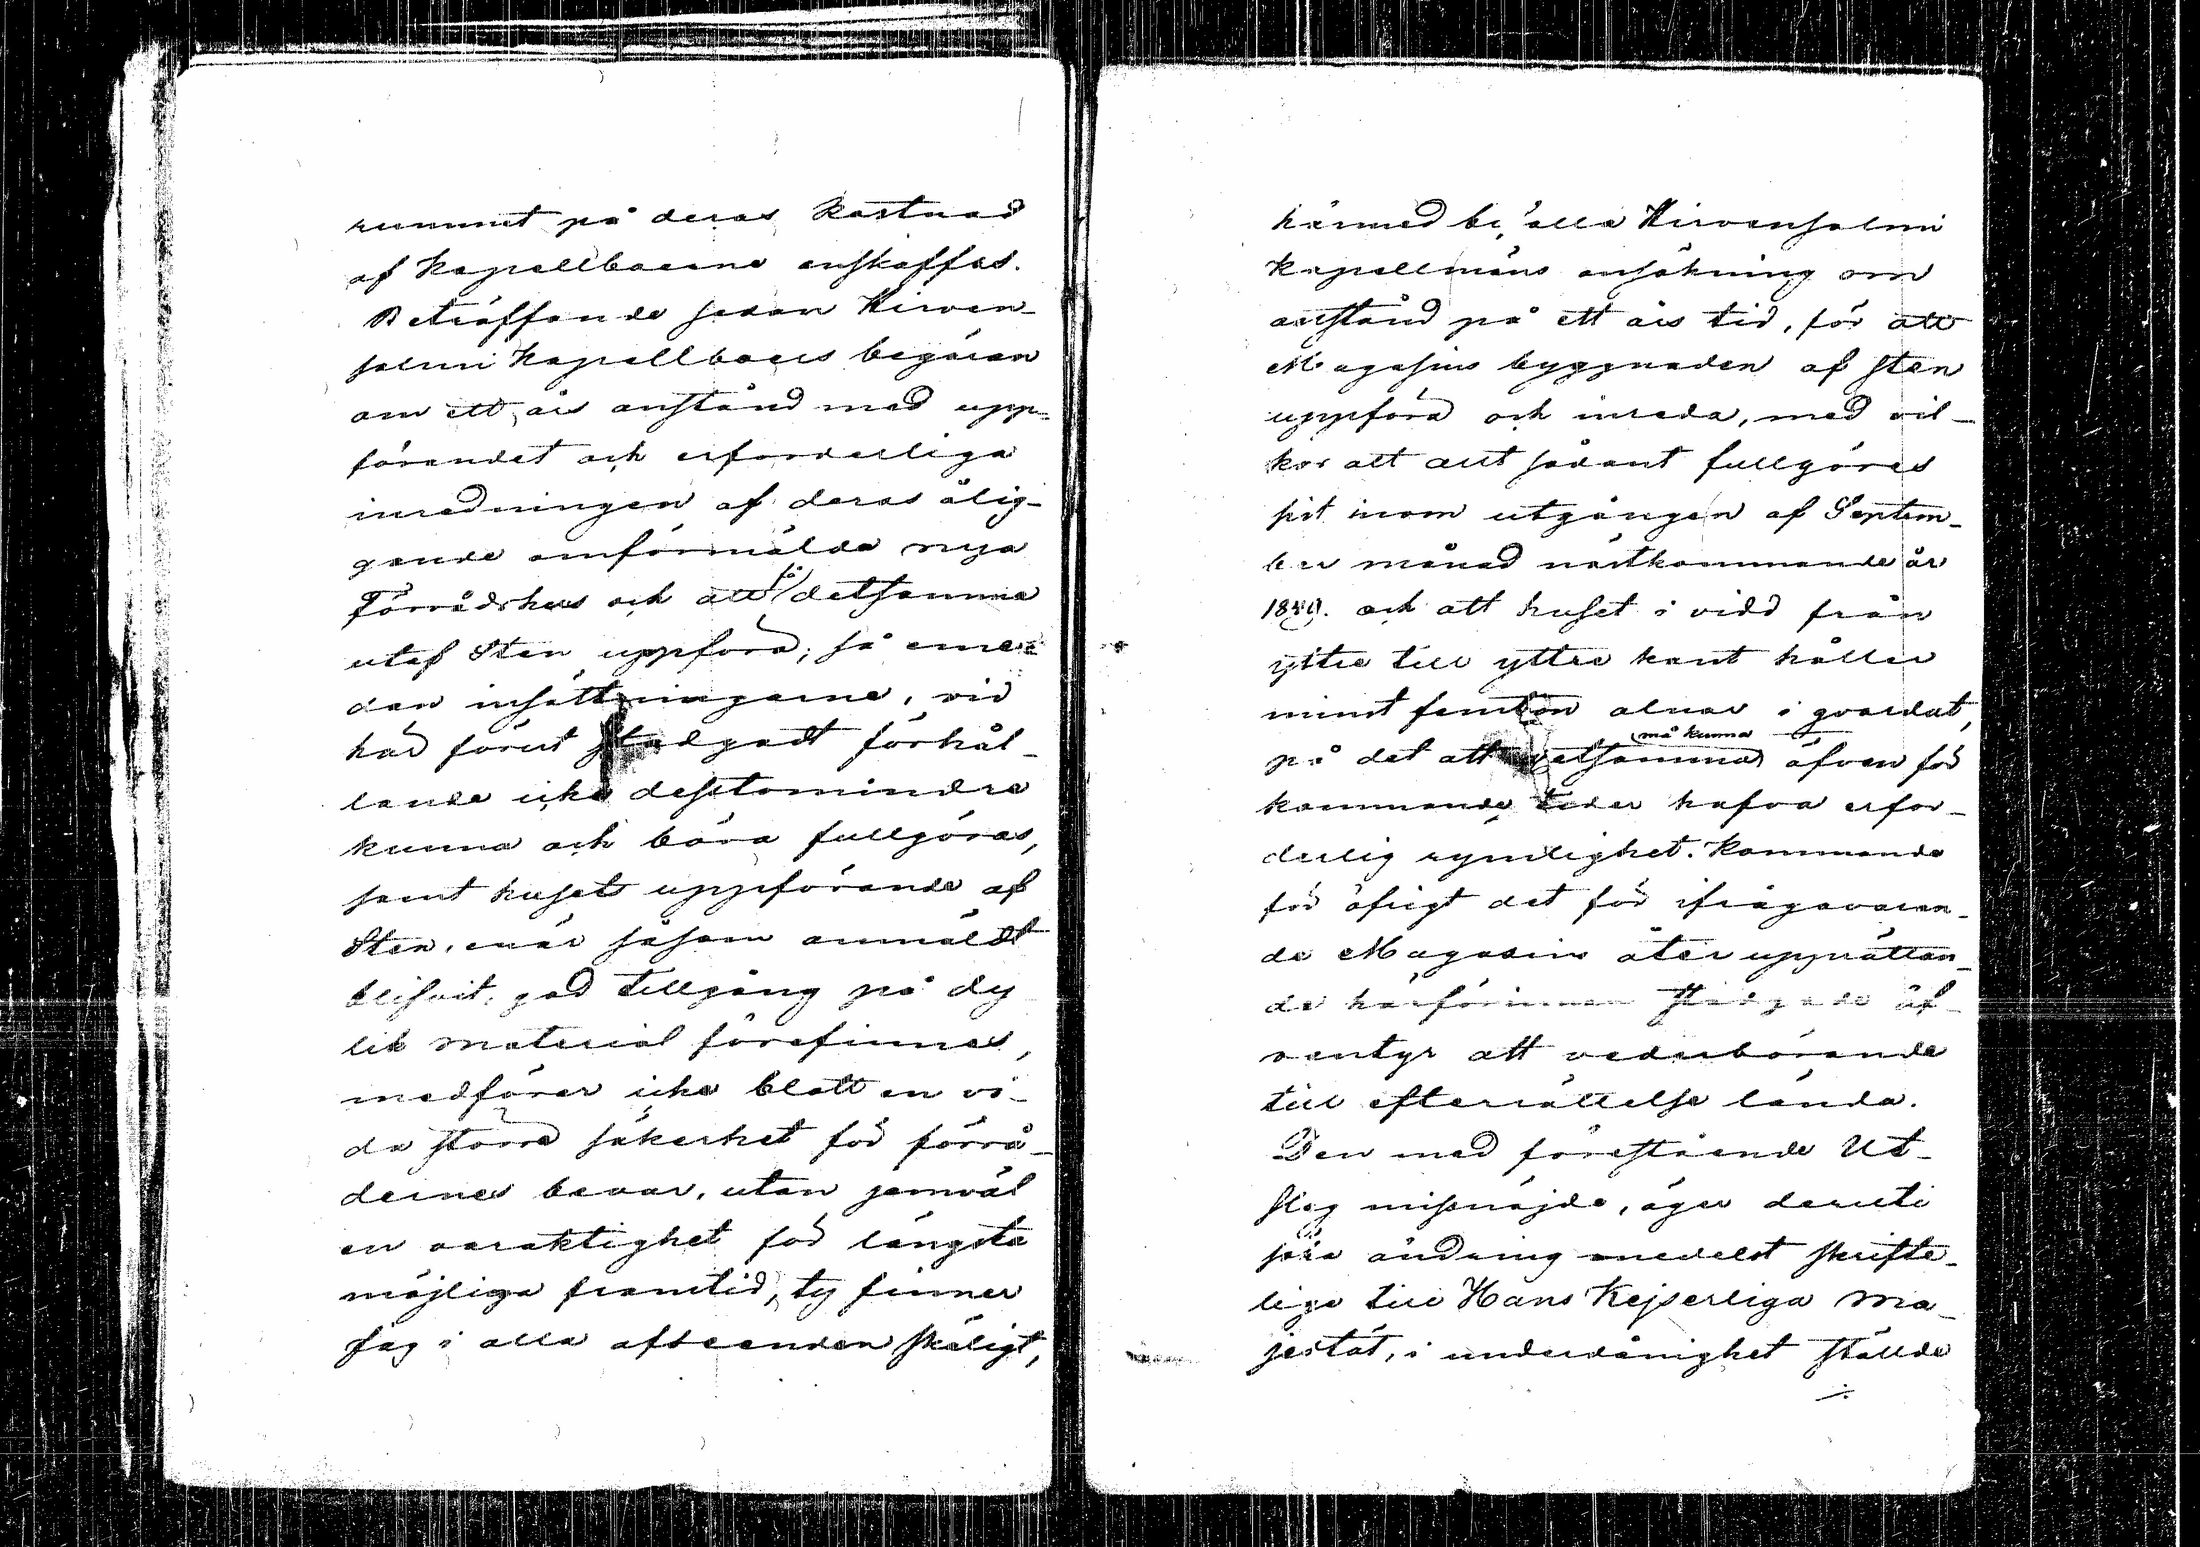 rummet på deras kostnad
af Kapellboerne anskaffas.
Beträffande sedan Hirven-
salmi Kapellboers begäran
om ett års anstånd med upp-
förandet och erforderliga
inredningen af deras ålig-
gande omförmälda nya
Förrådshus och att få detsamma
utaf Sten uppföra; så eme-
dan insättningarne, vid
här förut stadgadt förhål-
lande icke desstomindre
kunna och böra fullgöras,
samt husets uppförande af
Sten, enär såsom anmäldt
blifvit, god tillgång på dy
lik material förefinnes,
medförer icke blott en vi-
da större säkerhet för förrå-
dernes bevar, utan jemväl
en varaktighet för längsta
möjliga framtid, ty finner
Jag i alla afseenden skäligt,
härmed bifalla Hirvensalmi
Kapellmäns ansökning om
anstånd på ett års tid, för att
Magasins byggnaden af sten
uppföra och inreda, med vil-
kor att allt sådant fullgöres
sist inom utgången af Septem-
ber månad nästkommande år
och att huset i vidd från
yttre till yttre kant håller
minst femton alnar i qvardat,
på det att detsamma må kunna äfven för
kommande tider hafva erfor-
derlig rymlighet. Kommande
för öfrigt det för ifrågavaran-
de Magasins återupprättan-
de härförinnan stadgade äf-
ventyr att vederbörande
till efterrättelse lända.
Den med förestående Ut-
slag missnöjde, äger deruti
söka ändring medelst skrifte-
lige till Hans Kejserliga Ma-
jestät, i underdånighet ställde